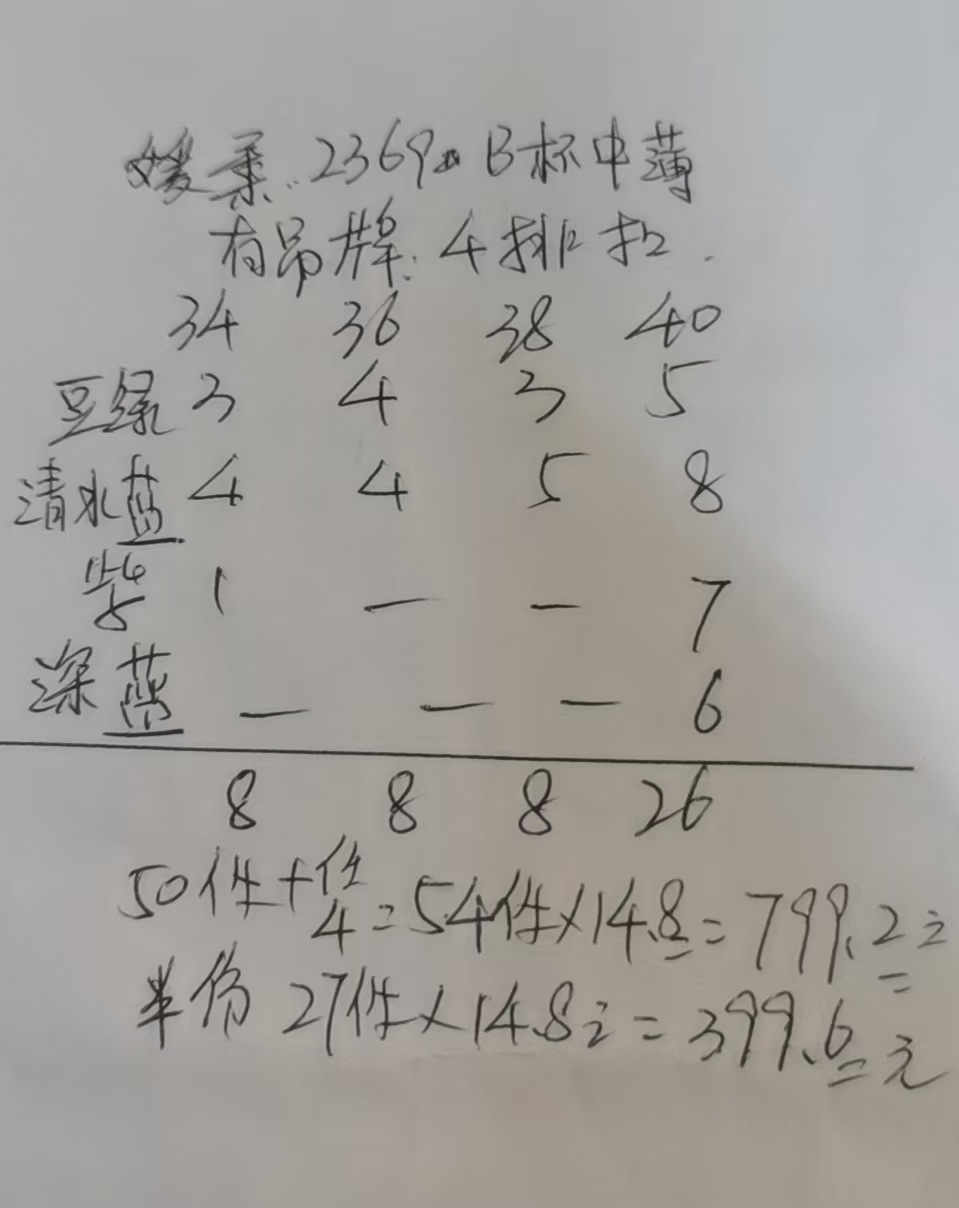 媛柔. 2369. B杯中薄
有吊牌. 4排扣.
34 36 38 40
豆绿 3 4 3 5
清水蓝 4 4 5 8
紫 1 — — 7
深蓝 — — — 6
8 8 8 26
50件+件4=54件×14.8=799.2元
半份 27件×14.8元=399.6元